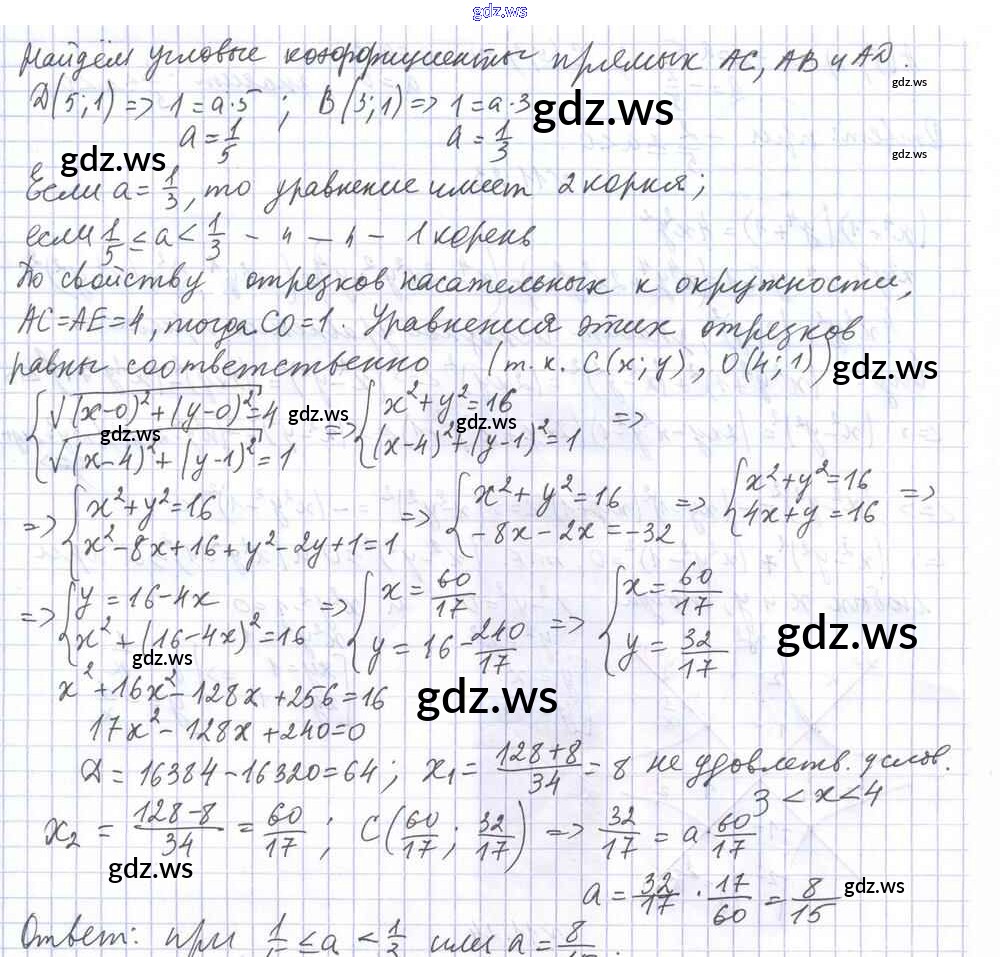 gdz.ws
Найдём угловые коэффициенты прямых AC, AB и AD.
gdz.ws
D(5;1) => 1=a·5 ; B(3;1) => 1=a·3
gdz.ws
a=1/5 a=1/3
gdz.ws
gdz.ws
Если a=1/3, то уравнение имеет 2 корня;
если 1/5 ≤ a < 1/3 - 4 - 4 - 1 корень
По свойству отрезков касательных к окружности,
AC=AE=4, тогда CO=1. Уравнения этих отрезков
равны соответственно (т.к. C(x;y), O(4;1))
gdz.ws
{√((x-0)²+(y-0)²)=4 => {x²+y²=16 =>
√((x-4)²+(y-1)²)=1 (x-4)²+(y-1)²=1
gdz.ws
gdz.ws
gdz.ws
=> {x²+y²=16 => {x²+y²=16 => {x²+y²=16 =>
x²-8x+16+y²-2y+1=1 -8x-2x=-32 4x+y=16
=> {y=16-4x => {x=60/17 => {x=60/17
x²+(16-4x)²=16 y=16-240/17 y=32/17
gdz.ws
gdz.ws
x²+16x²-128x+256=16
gdz.ws
17x²-128x+240=0
D=16384-16320=64; x₁=(128+8)/34=8 не удовлетв. услов.
3<x<4
x₂=(128-8)/34=60/17; C(60/17; 32/17) => 32/17=a·60/17
gdz.ws
a=32/17·17/60=8/15
gdz.ws
Ответ: при ≤a< или a=